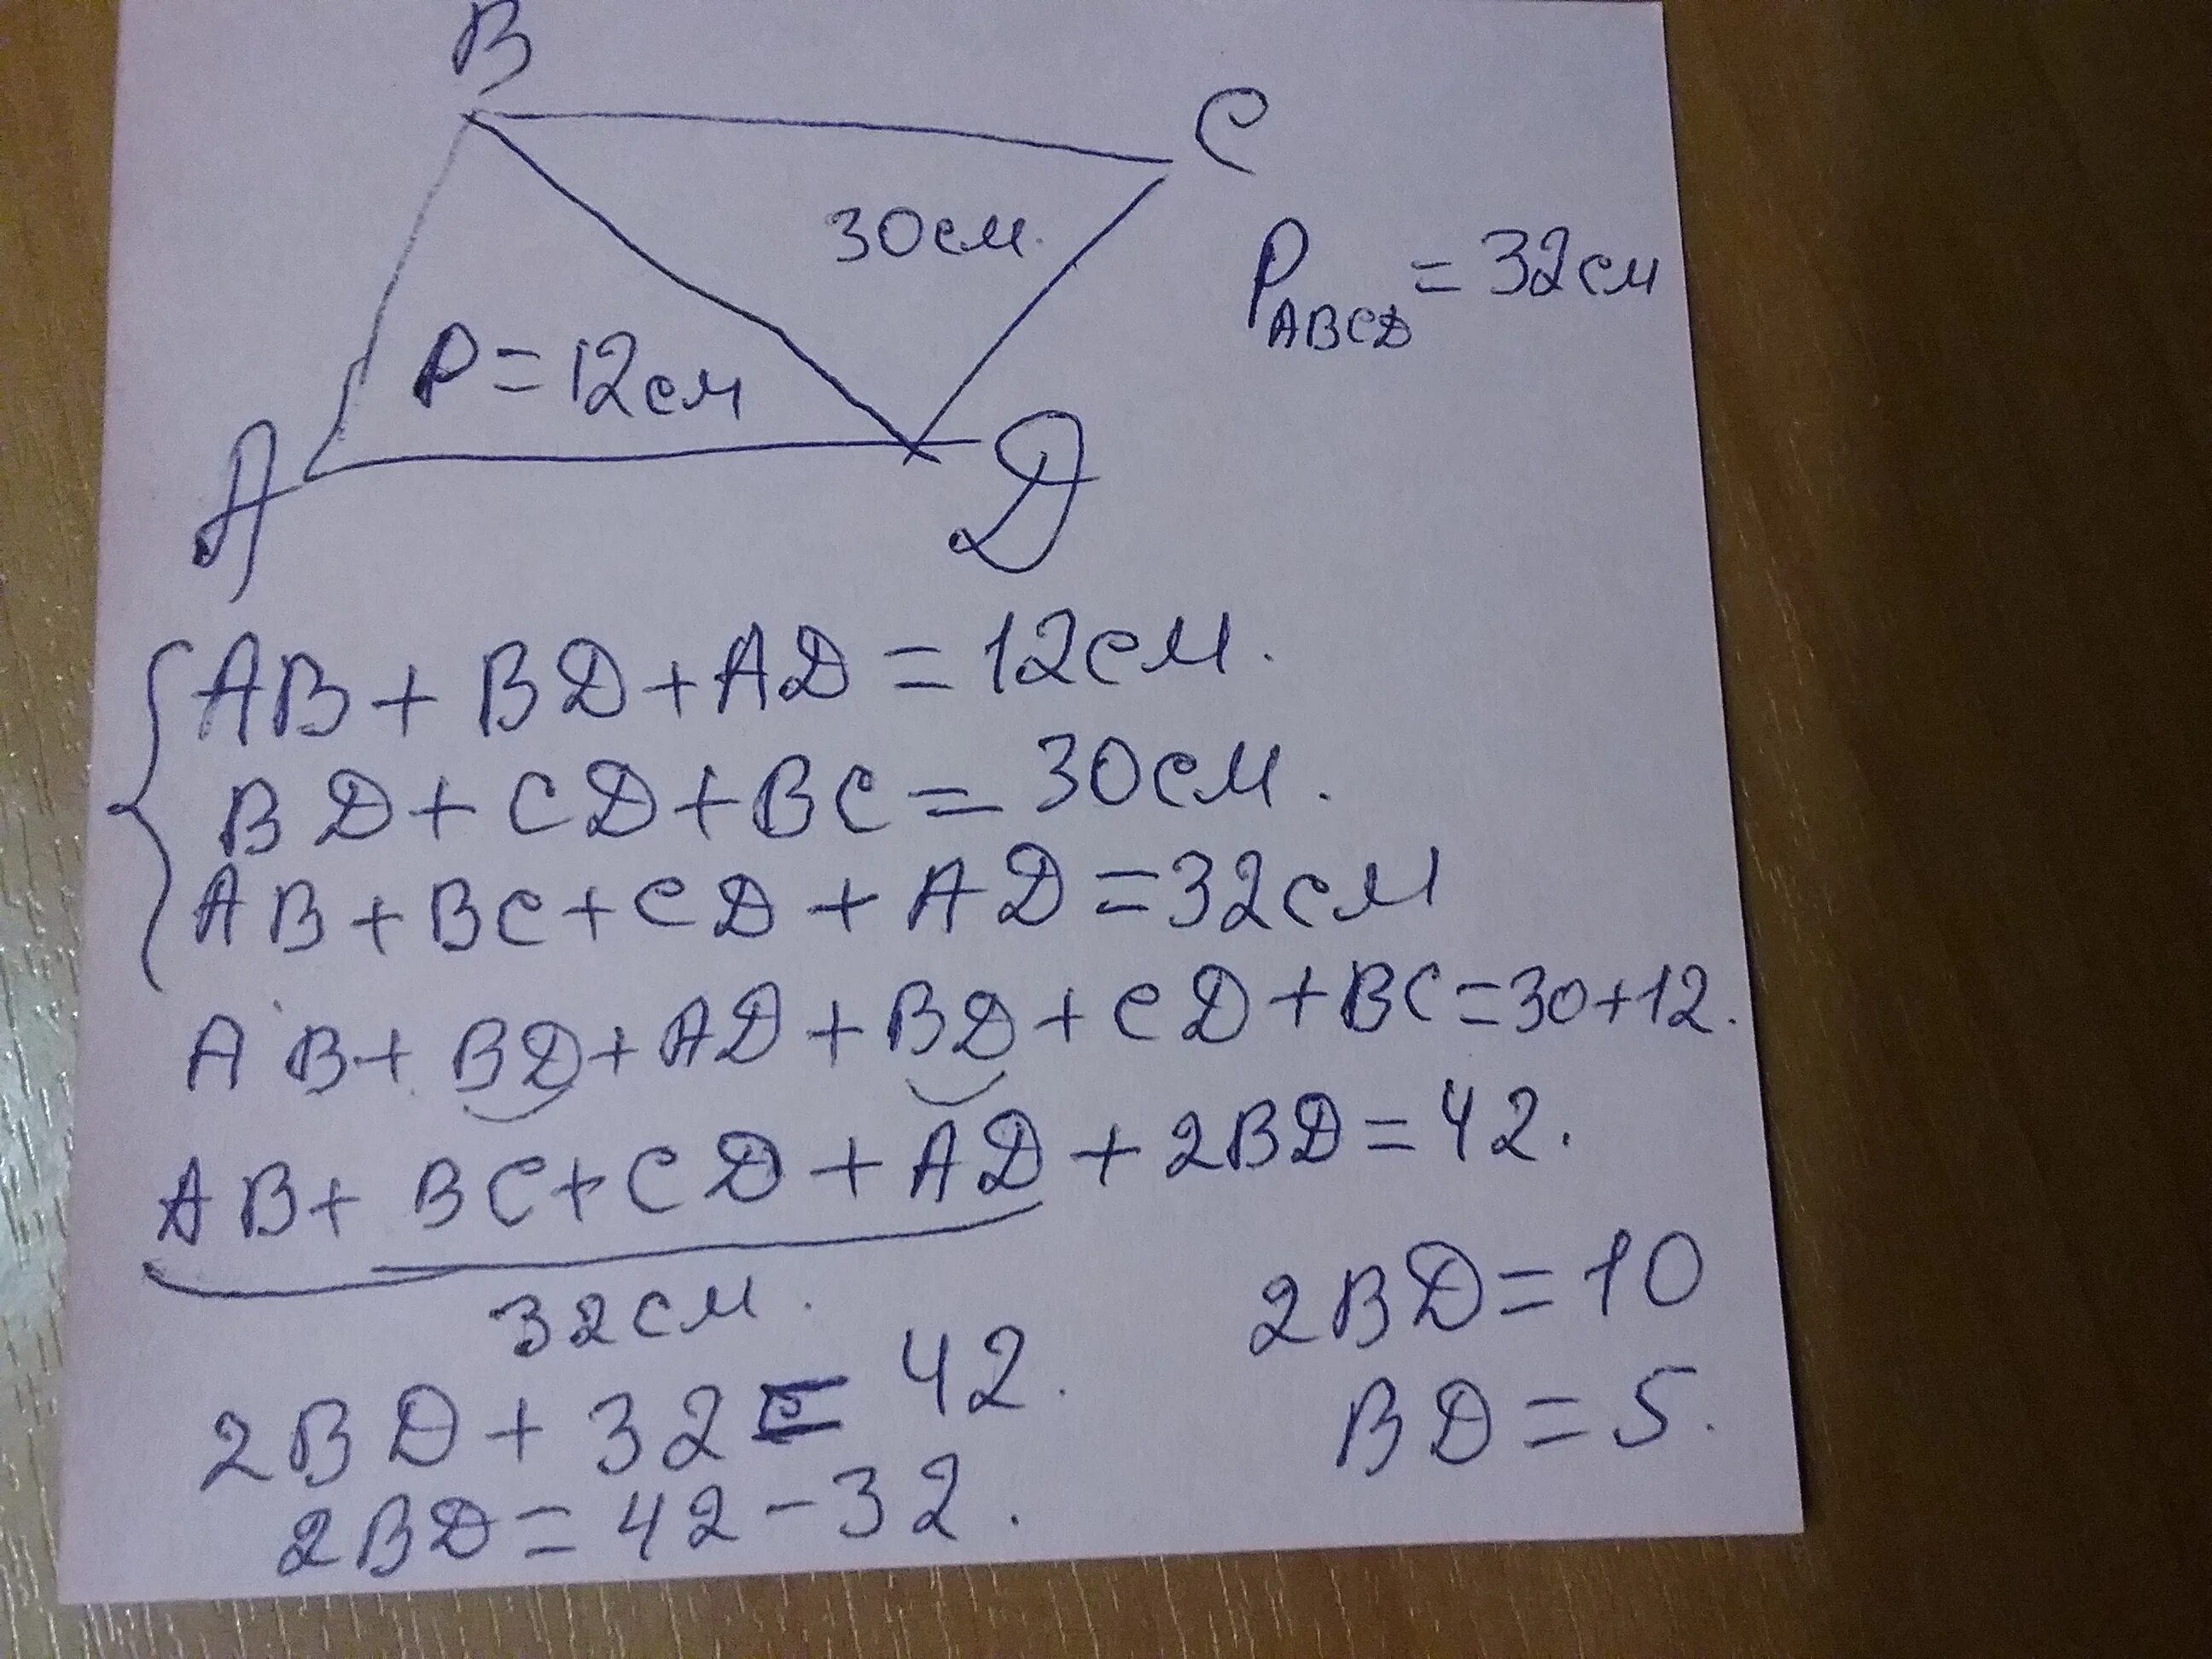 B
C
30см.
P_ABCD = 32см
P = 12см
A
D
AB + BD + AD = 12см.
BD + CD + BC = 30см.
AB + BC + CD + AD = 32см
AB + BD + AD + BD + CD + BC = 30 + 12.
AB + BC + CD + AD + 2BD = 42.
32см.
2BD + 32 = 42.
2BD = 42 - 32.
2BD = 10
BD = 5.